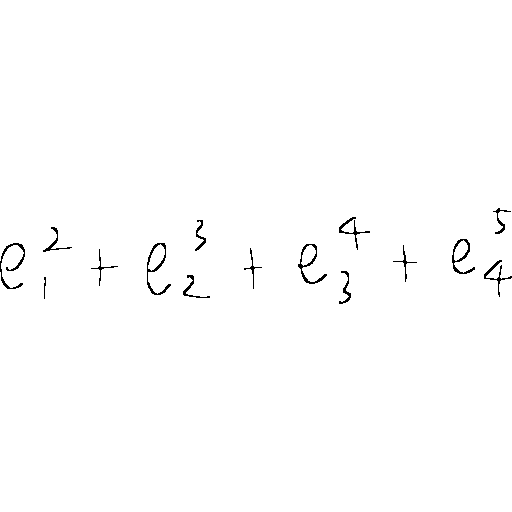 e_1^2 + e_2^3 + e_3^4 + e_4^5